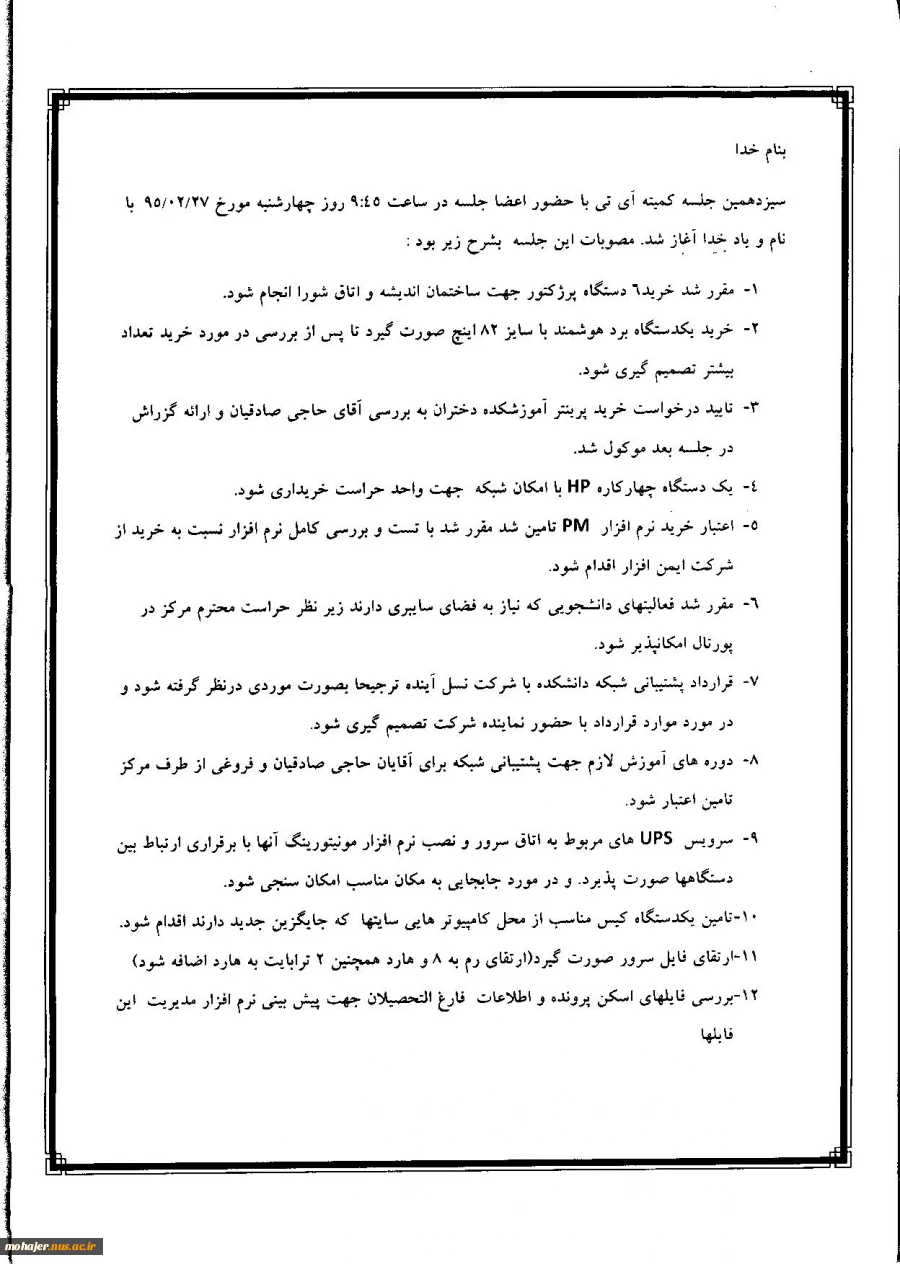 بنام خدا
سیزدهمین جلسه کمیته آی تی با حضور اعضا جلسه در ساعت ۹:٤٥ روز چهارشنبه مورخ ۹٥/۰۲/۲۷ با
نام و یاد خدا آغاز شد. مصوبات این جلسه بشرح زیر بود :
۱- مقرر شد خرید٦ دستگاه پرژکتور جهت ساختمان اندیشه و اتاق شورا انجام شود.
۲- خرید یکدستگاه برد هوشمند با سایز ۸۲ اینچ صورت گیرد تا پس از بررسی در مورد خرید تعداد
بیشتر تصمیم گیری شود.
۳- تایید درخواست خرید پرینتر آموزشکده دختران به بررسی آقای حاجی صادقیان و ارائه گزراش
در جلسه بعد موکول شد.
٤- یک دستگاه چهارکاره HP با امکان شبکه جهت واحد حراست خریداری شود.
٥- اعتبار خرید نرم افزار PM تامین شد مقرر شد با تست و بررسی کامل نرم افزار نسبت به خرید از
شرکت ایمن افزار اقدام شود.
٦- مقرر شد فعالیتهای دانشجویی که نیاز به فضای سایبری دارند زیر نظر حراست محترم مرکز در
پورتال امکانپذیر شود.
۷- قرارداد پشتیبانی شبکه دانشکده با شرکت نسل آینده ترجیحا بصورت موردی درنظر گرفته شود و
در مورد موارد قرارداد با حضور نماینده شرکت تصمیم گیری شود.
۸- دوره های آموزش لازم جهت پشتیبانی شبکه برای آقایان حاجی صادقیان و فروغی از طرف مرکز
تامین اعتبار شود.
۹- سرویس UPS های مربوط به اتاق سرور و نصب نرم افزار مونیتورینگ آنها با برقراری ارتباط بین
دستگاهها صورت پذیرد. و در مورد جابجایی به مکان مناسب امکان سنجی شود.
۱۰-تامین یکدستگاه کیس مناسب از محل کامپیوتر هایی سایتها که جایگزین جدید دارند اقدام شود.
۱۱-ارتقای فایل سرور صورت گیرد(ارتقای رم به ۸ و هارد همچنین ۲ ترابایت به هارد اضافه شود)
۱۲-بررسی فایلهای اسکن پرونده و اطلاعات فارغ التحصیلان جهت پیش بینی نرم افزار مدیریت این
فایلها
mohajer.nus.ac.ir